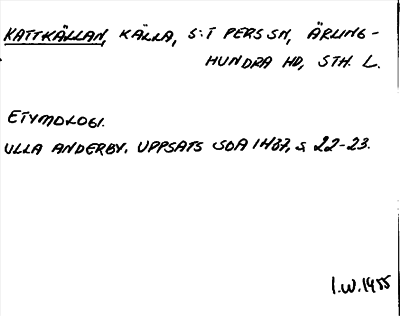 KATTKÄLLAN, KÄLLA, S:T PERS SN, ÄRLING-
HUNDRA HD, STH. L.
ETYMOLOGI.
ULLA ANDERBY. UPPSATS SOA 1487, s 22-23.
I.W. 1955